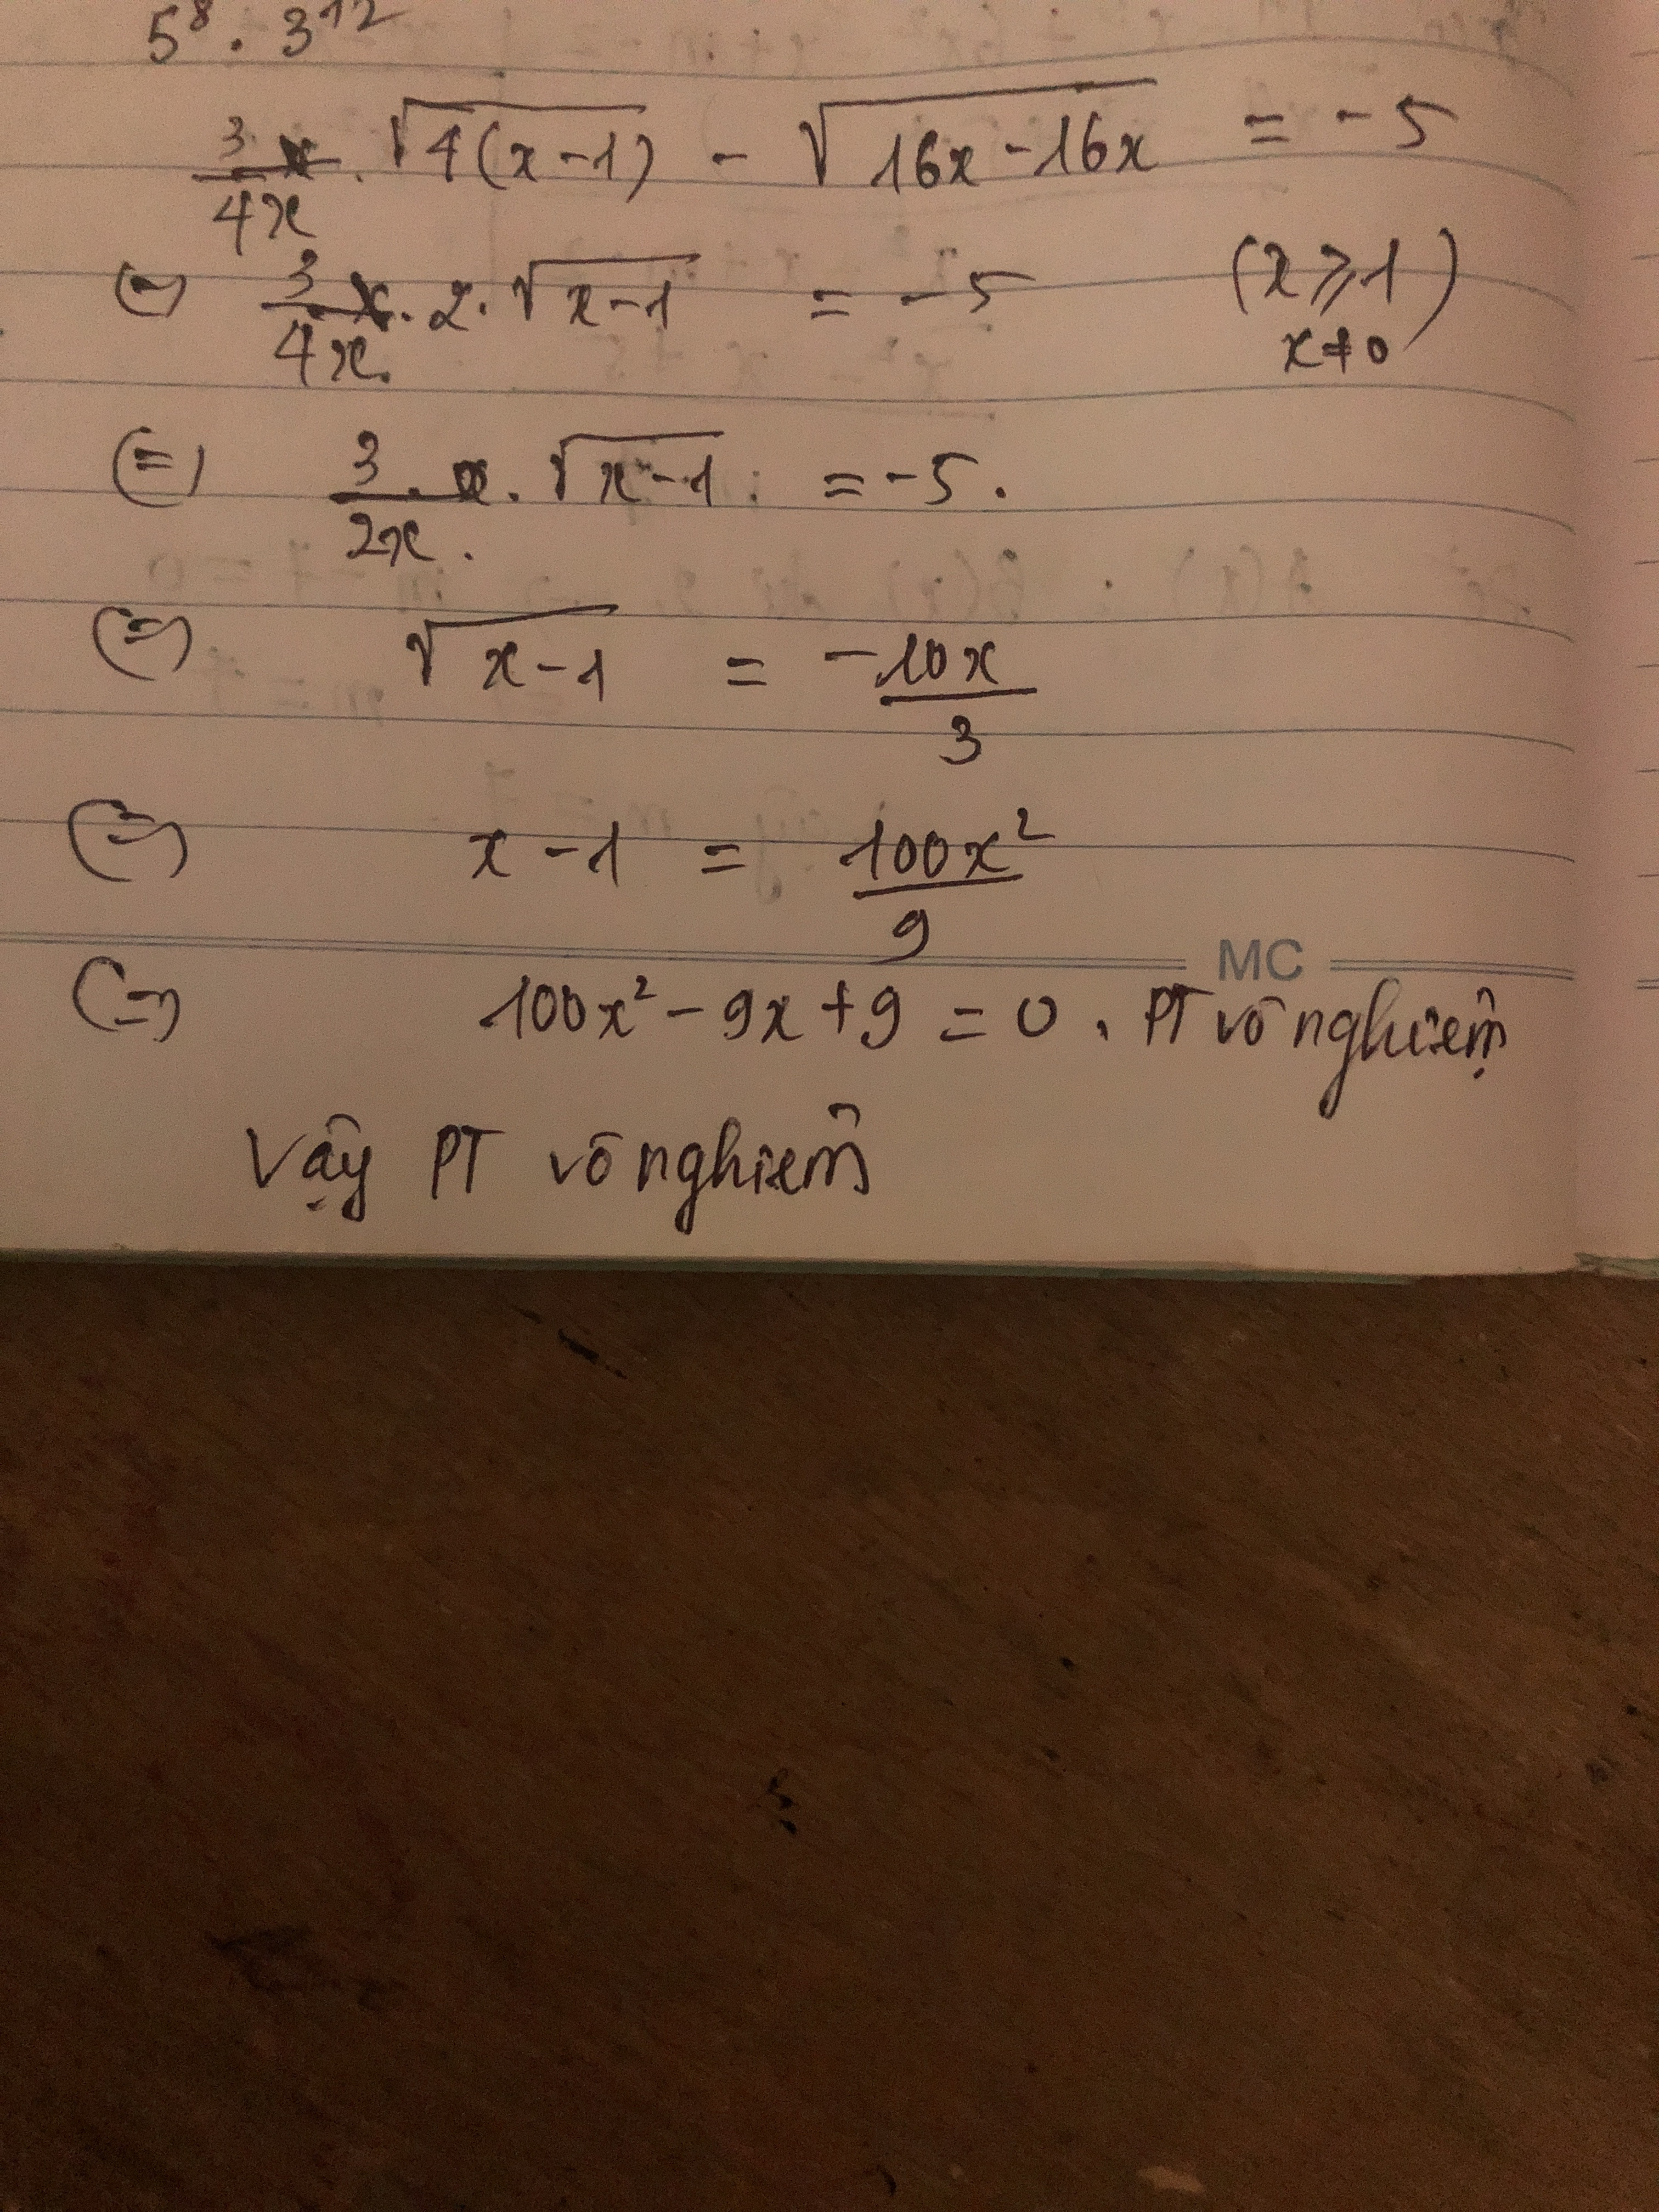 5⁸ . 3¹²
3/4x . √4(x-1) - √16x-16x = -5
(=) 3/4x . 2 . √x-1 = -5 (x ⩾ 1
x ≠ 0)
(=) 3/2x . √x-1 = -5.
(=) √x-1 = -10x/3
(=) x-1 = 100x²/9
MC
(=) 100x² - 9x + 9 = 0 . PT vô nghiệm
Vậy PT vô nghiệm